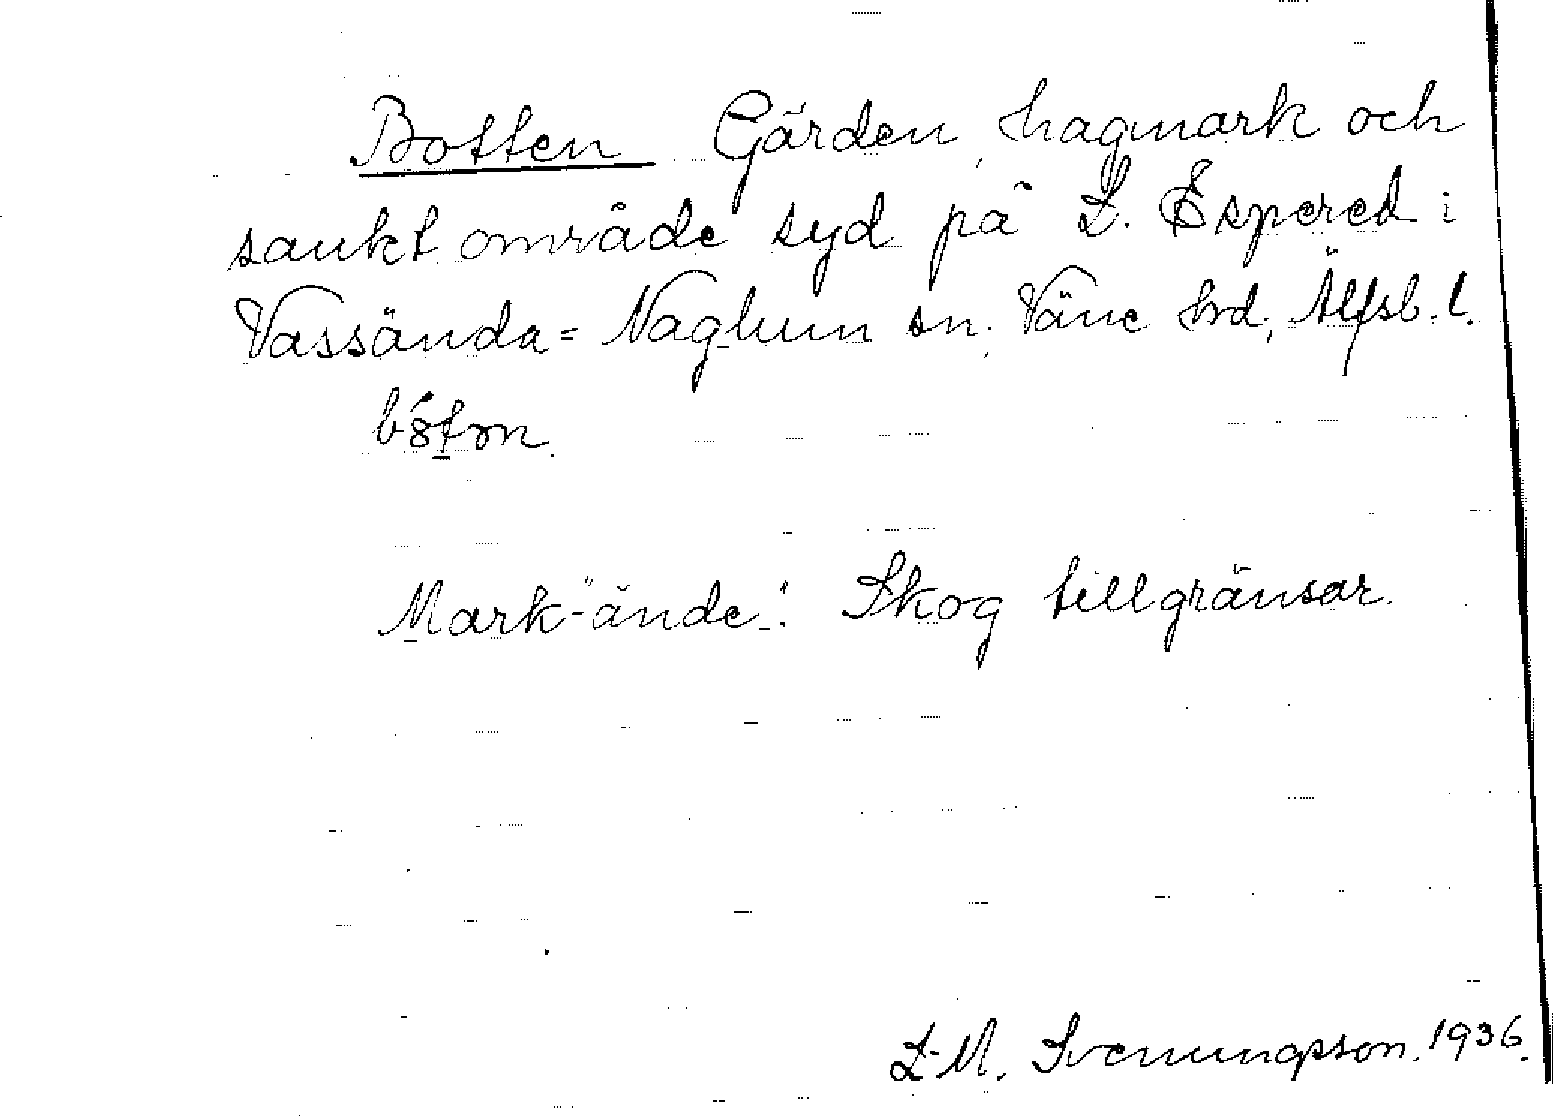 Botten Gärden, hagmark och
sankt område syd på L. Espered i
Vassända=Naglum sn. Väne hrd, Älfsb. l.
Mark-"ände": Skog tillgränsar.
L-M. Svenungsson. 1936.